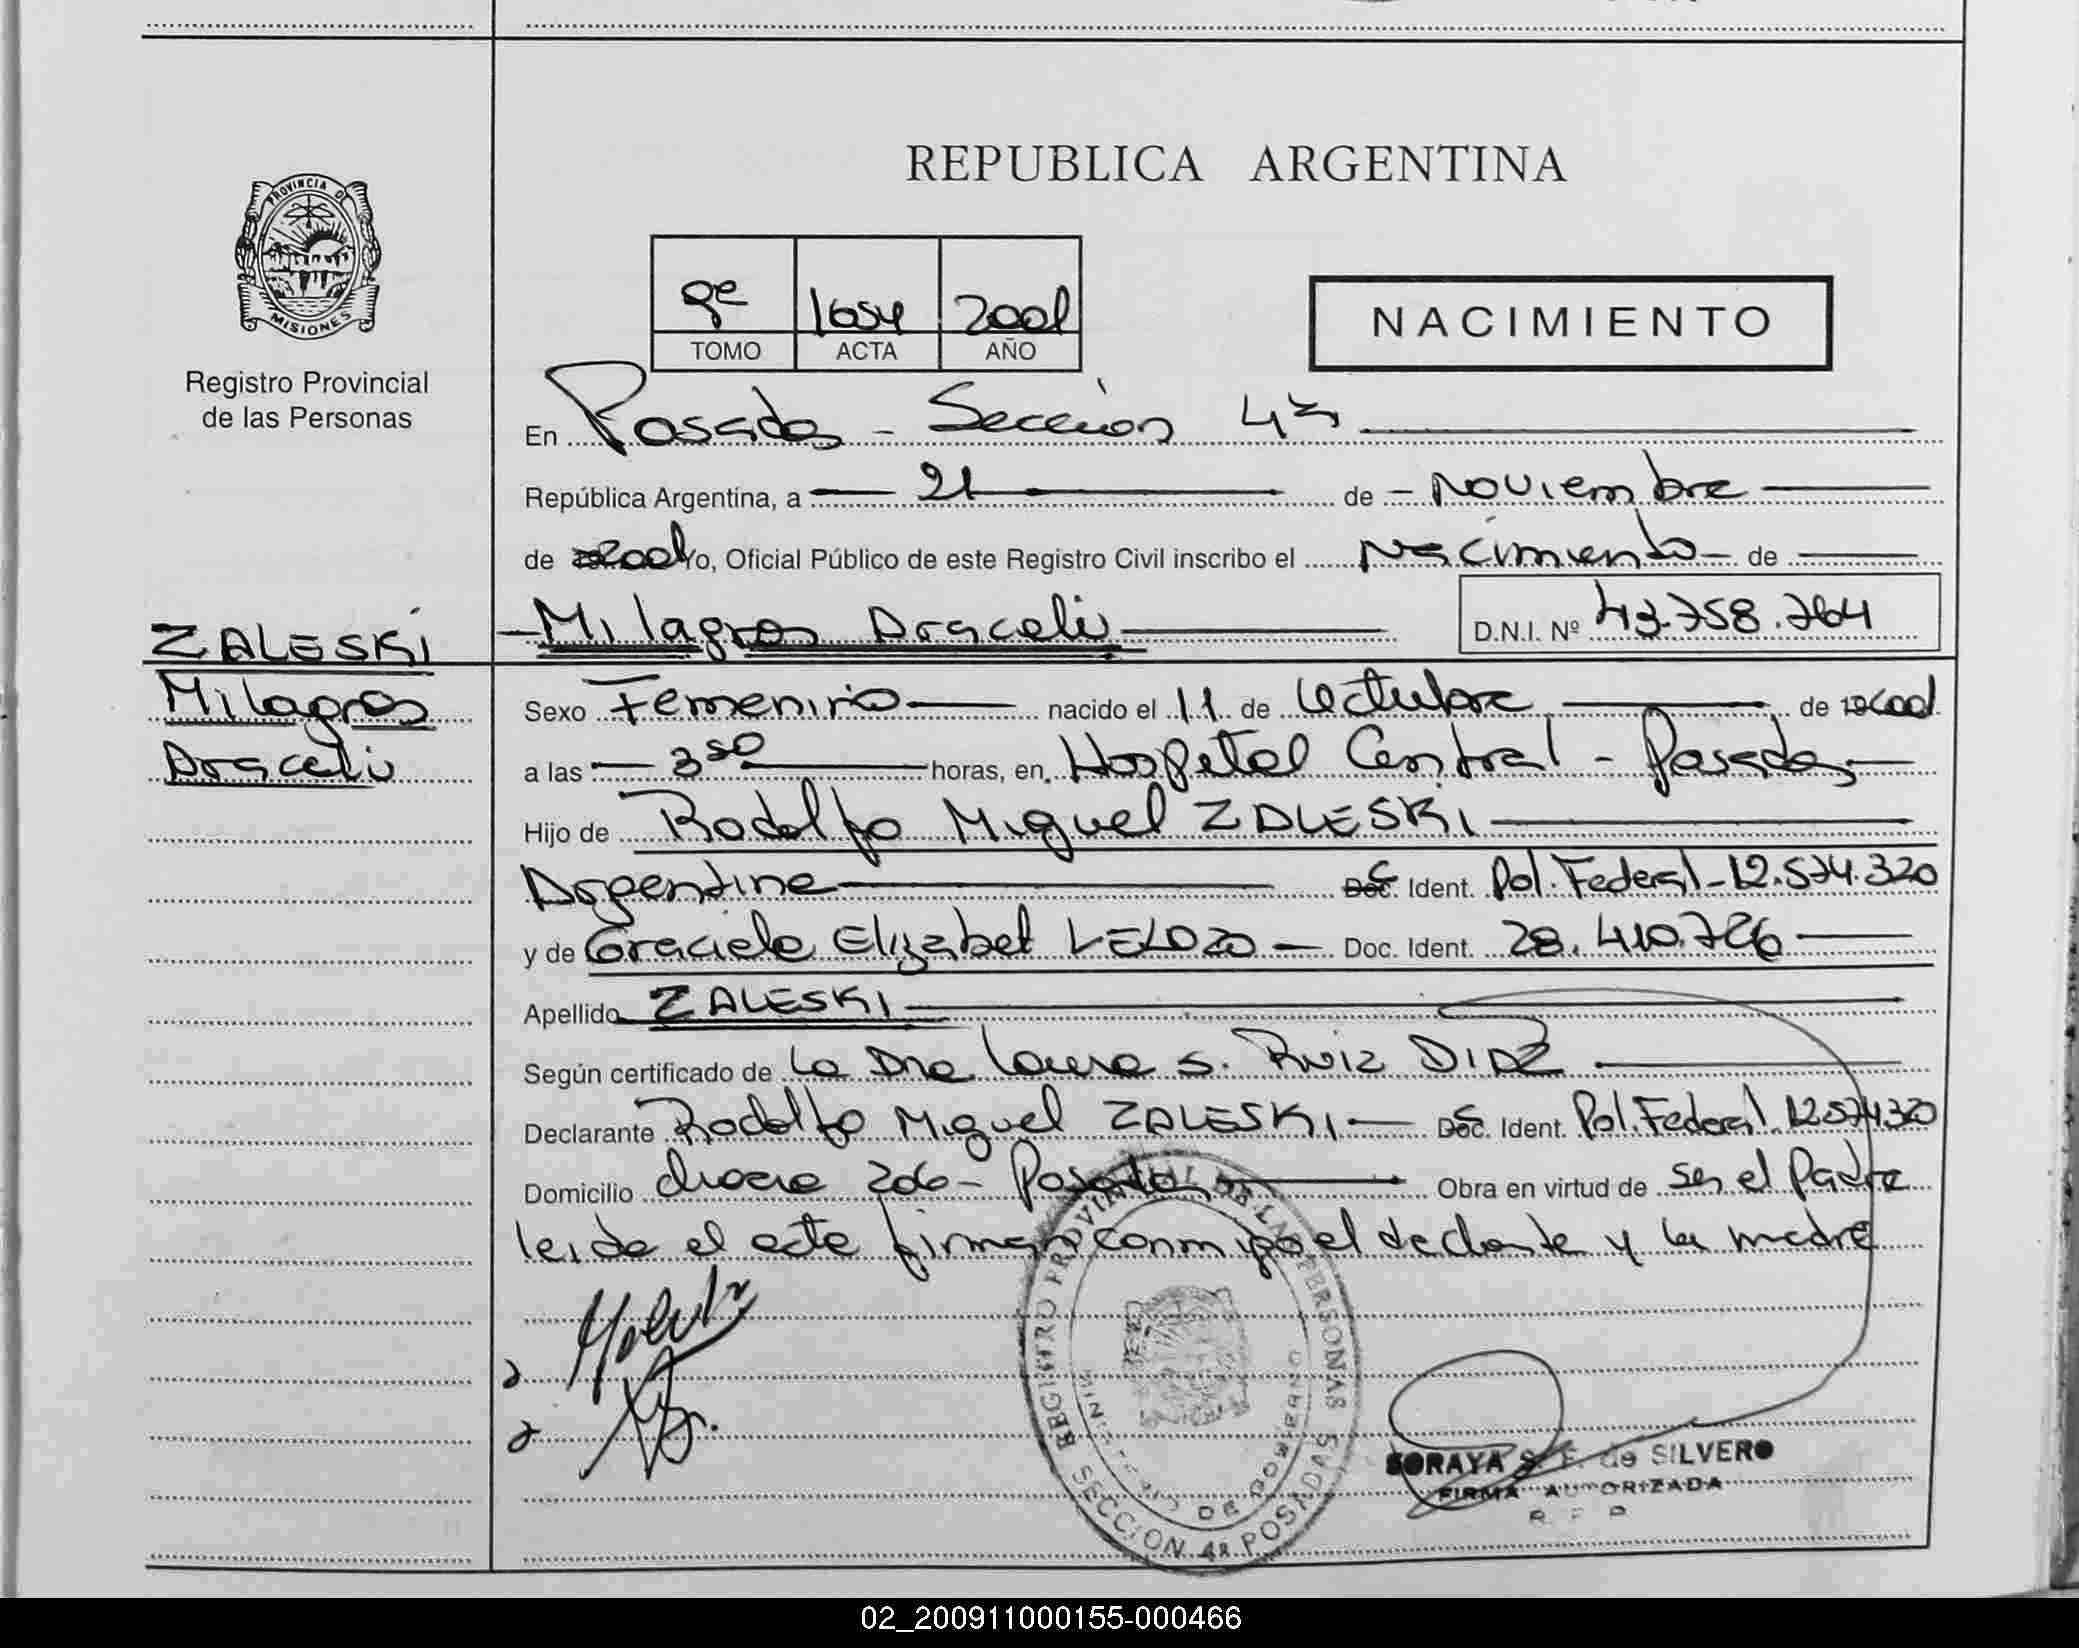 PROVINCIA D
MISIONES
Registro Provincial
de las Personas
ZALESKI
Milagros
Araceli
REPUBLICA ARGENTINA
1654 2001
TOMO ACTA AÑO
NACIMIENTO
En Posadas - Sección 4ta
República Argentina, a 21 de Noviembre
de 2001 Yo, Oficial Público de este Registro Civil inscribo el Nacimiento de
Milagros Araceli D.N.I. Nº 43.758.764
Sexo Femenino nacido el 11 de Octubre de 2001
a las 3 50 horas, en Hospital Central - Posadas
Hijo de Rodolfo Miguel ZALESKI
Argentina Ident. Pol. Federal - 12.574.320
y de Graciela Elizabet Doc. Ident. 28.410.726
Apellido ZALESKI
Según certificado de La Dra Laura S. Ruiz DIAZ
Declarante Rodolfo Miguel ZALESKI Ident. Pol. Federal 12.574.320
Domicilio 206 - Posadas Obra en virtud de ser el Padre
leida el acta firman conmigo el declarante y la madre
REGISTRO PROVINCIAL DE LAS PERSONAS
MINISTERIO DE GOBIERNO
SECCION 4ª POSADAS
SORAYA S. F. de SILVERO
FIRMA AUTORIZADA
02_200911000155-000466